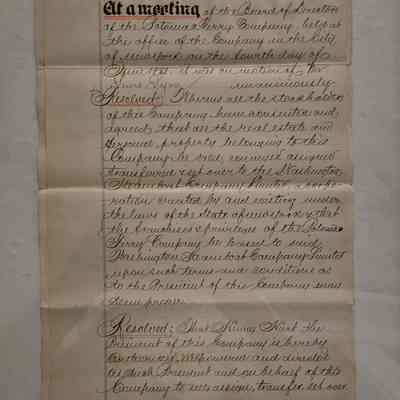 At a meeting of the Board of Directors
of the Potomac Ferry Company, held at
the office of the Company in the City
of on the fourth day of
it was on motion of
unanimously
Resolved: Whereas all the stockholders
of this Company have consented and
agreed that all the real estate and
personal property belonging to this
Company be sold, conveyed assigned
transferred & set over to the Washington
Steamboat Company Limited a corpo-
ration created by and existing under
the laws of the State of and that
the franchises & privileges of the Potomac
Ferry Company be leased to said
Washington Steamboat Company Limited
upon such terms and conditions as
to the President of this Company may
seem proper.
Resolved: That the
President of this Company is hereby
authorized, empowered and directed
as such President and on behalf of this
Company to sell assign, transfer, set over